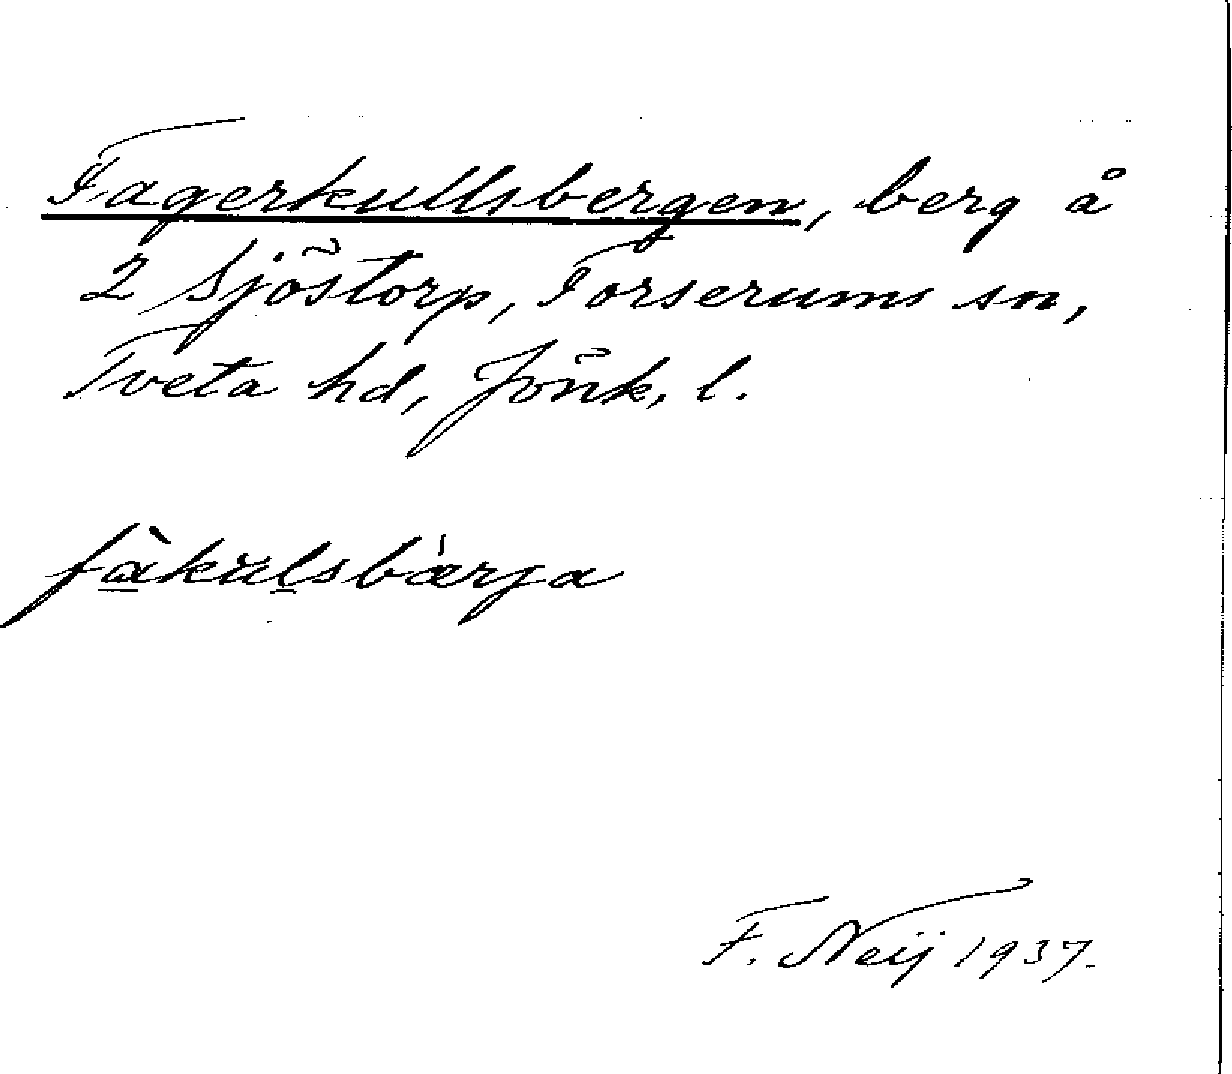 Fagerkullsbergen, berg å
2 Sjöstorp, Forserums sn,
Tveta hd, Jönk. l.
fàkulsbærja
F. Neij 1937.